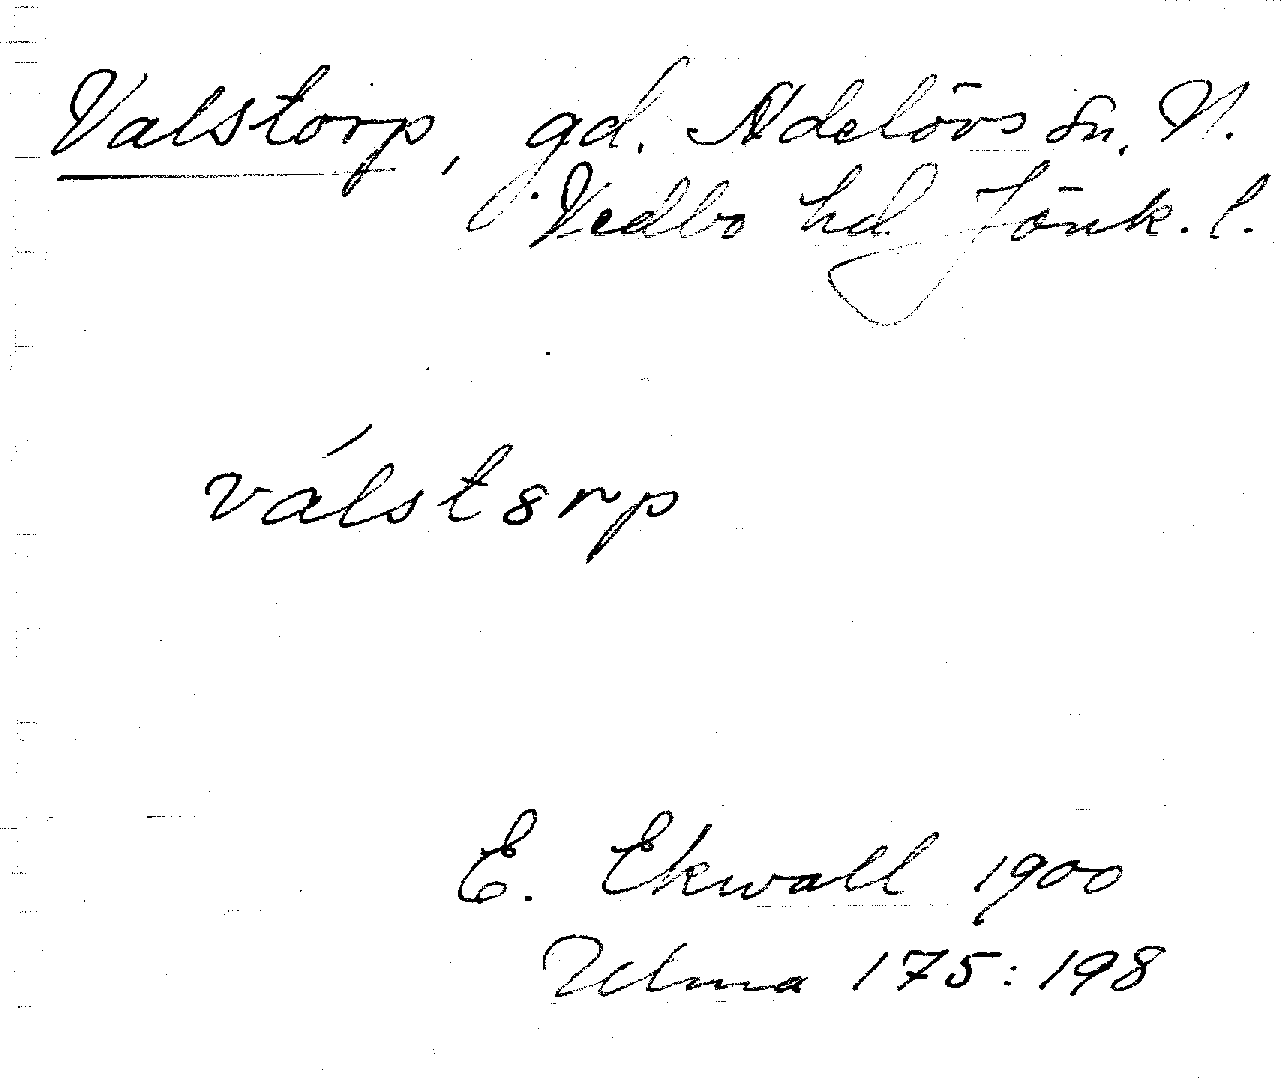 Valstorp, gd. Adelövs sn. N.
Vedbo hd Jönk. l.
válst8rp
E. Ekwall 1900
Ulma 175:198